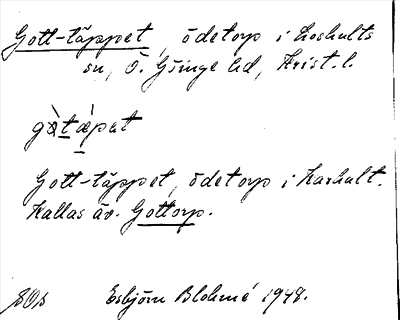 Gott-täppet, ödetorp i Loshults
sn, Ö. Göinge hd, Krist. l.
Gott-täppet, ödetorp i Karhult.
Kallas äv. Gottorp.
Esbjörn Blohmé 1948.